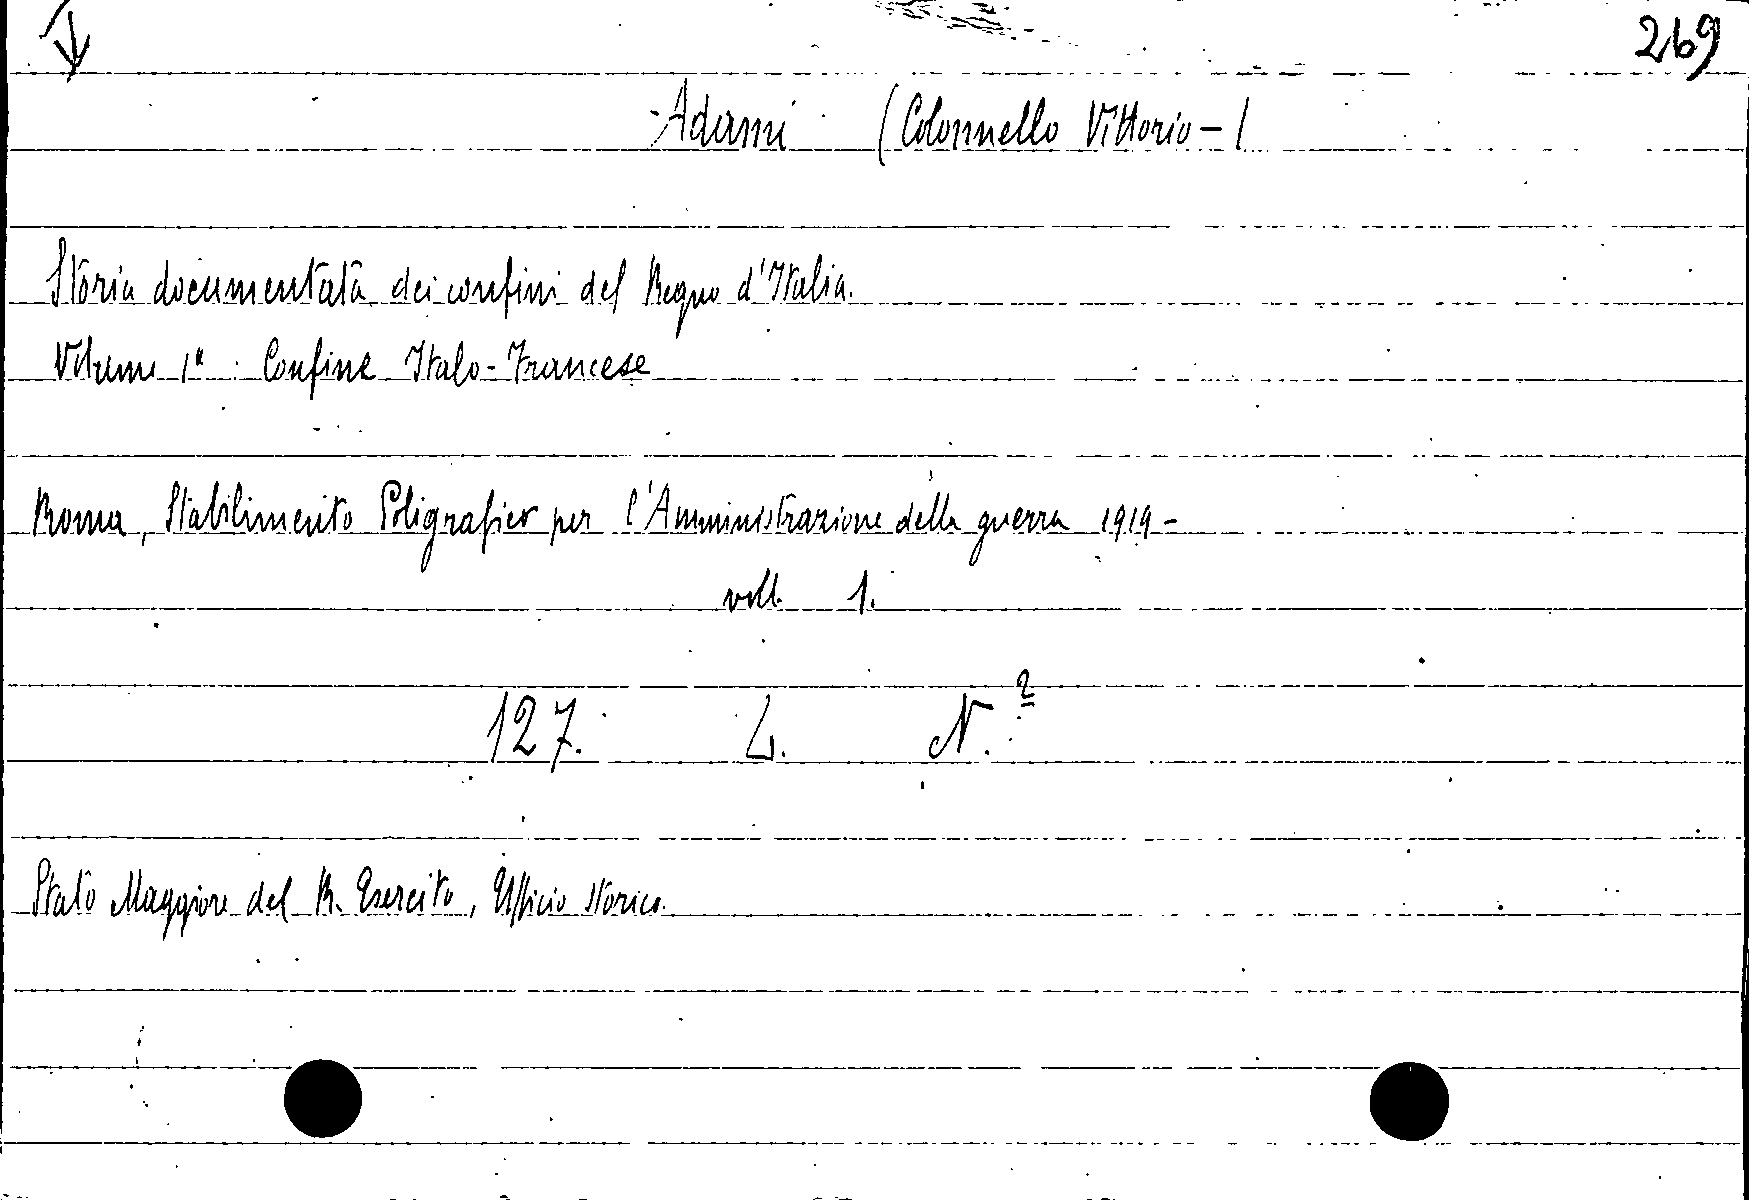 269
Adami (Colonnello Vittorio - (
Storia documentata dei confini del Regno d'Italia.
Volume 1° : Confine Italo-Francese
Roma, Stabilimento Poligrafico per l'Amministrazione della guerra 1919 -
voll. 1.
127. L. N. 2
Stato Maggiore del R. Esercito, Ufficio storico.